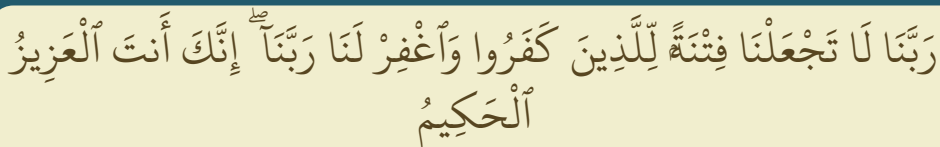 رَبَّنَا لَا تَجْعَلْنَا فِتْنَةً لِّلَّذِينَ كَفَرُوا وَٱغْفِرْ لَنَا رَبَّنَآ ۖ إِنَّكَ أَنتَ ٱلْعَزِيزُ
ٱلْحَكِيمُ